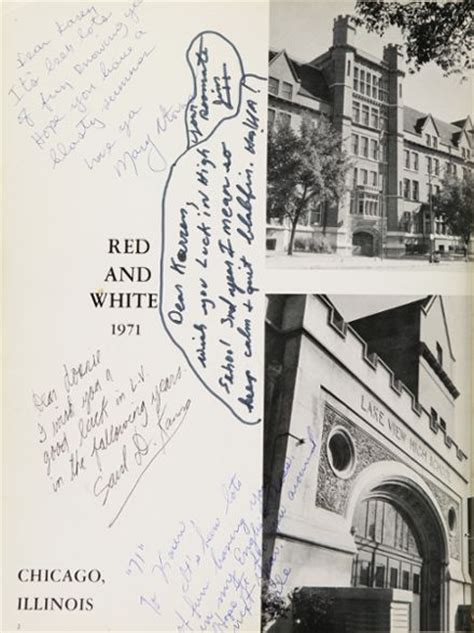 Dear Karen
It's been lots
of fun knowing you
Hope you have a
blasty summer
Love ya
Mary
Dear Karen,
wish you Luck in High
School 2nd year I mean so
keep calm & quit blabbin. HaHHA!!
your
Roommate
RED
AND
WHITE
1971
Dear
I wish you a
good luck in L.V.
in the following years.
Saul D.
LAKE VIEW HIGH SCHOOL
"71"
To Karen
It's been lots
of fun having you
in my
Hope
around
CHICAGO,
ILLINOIS
2